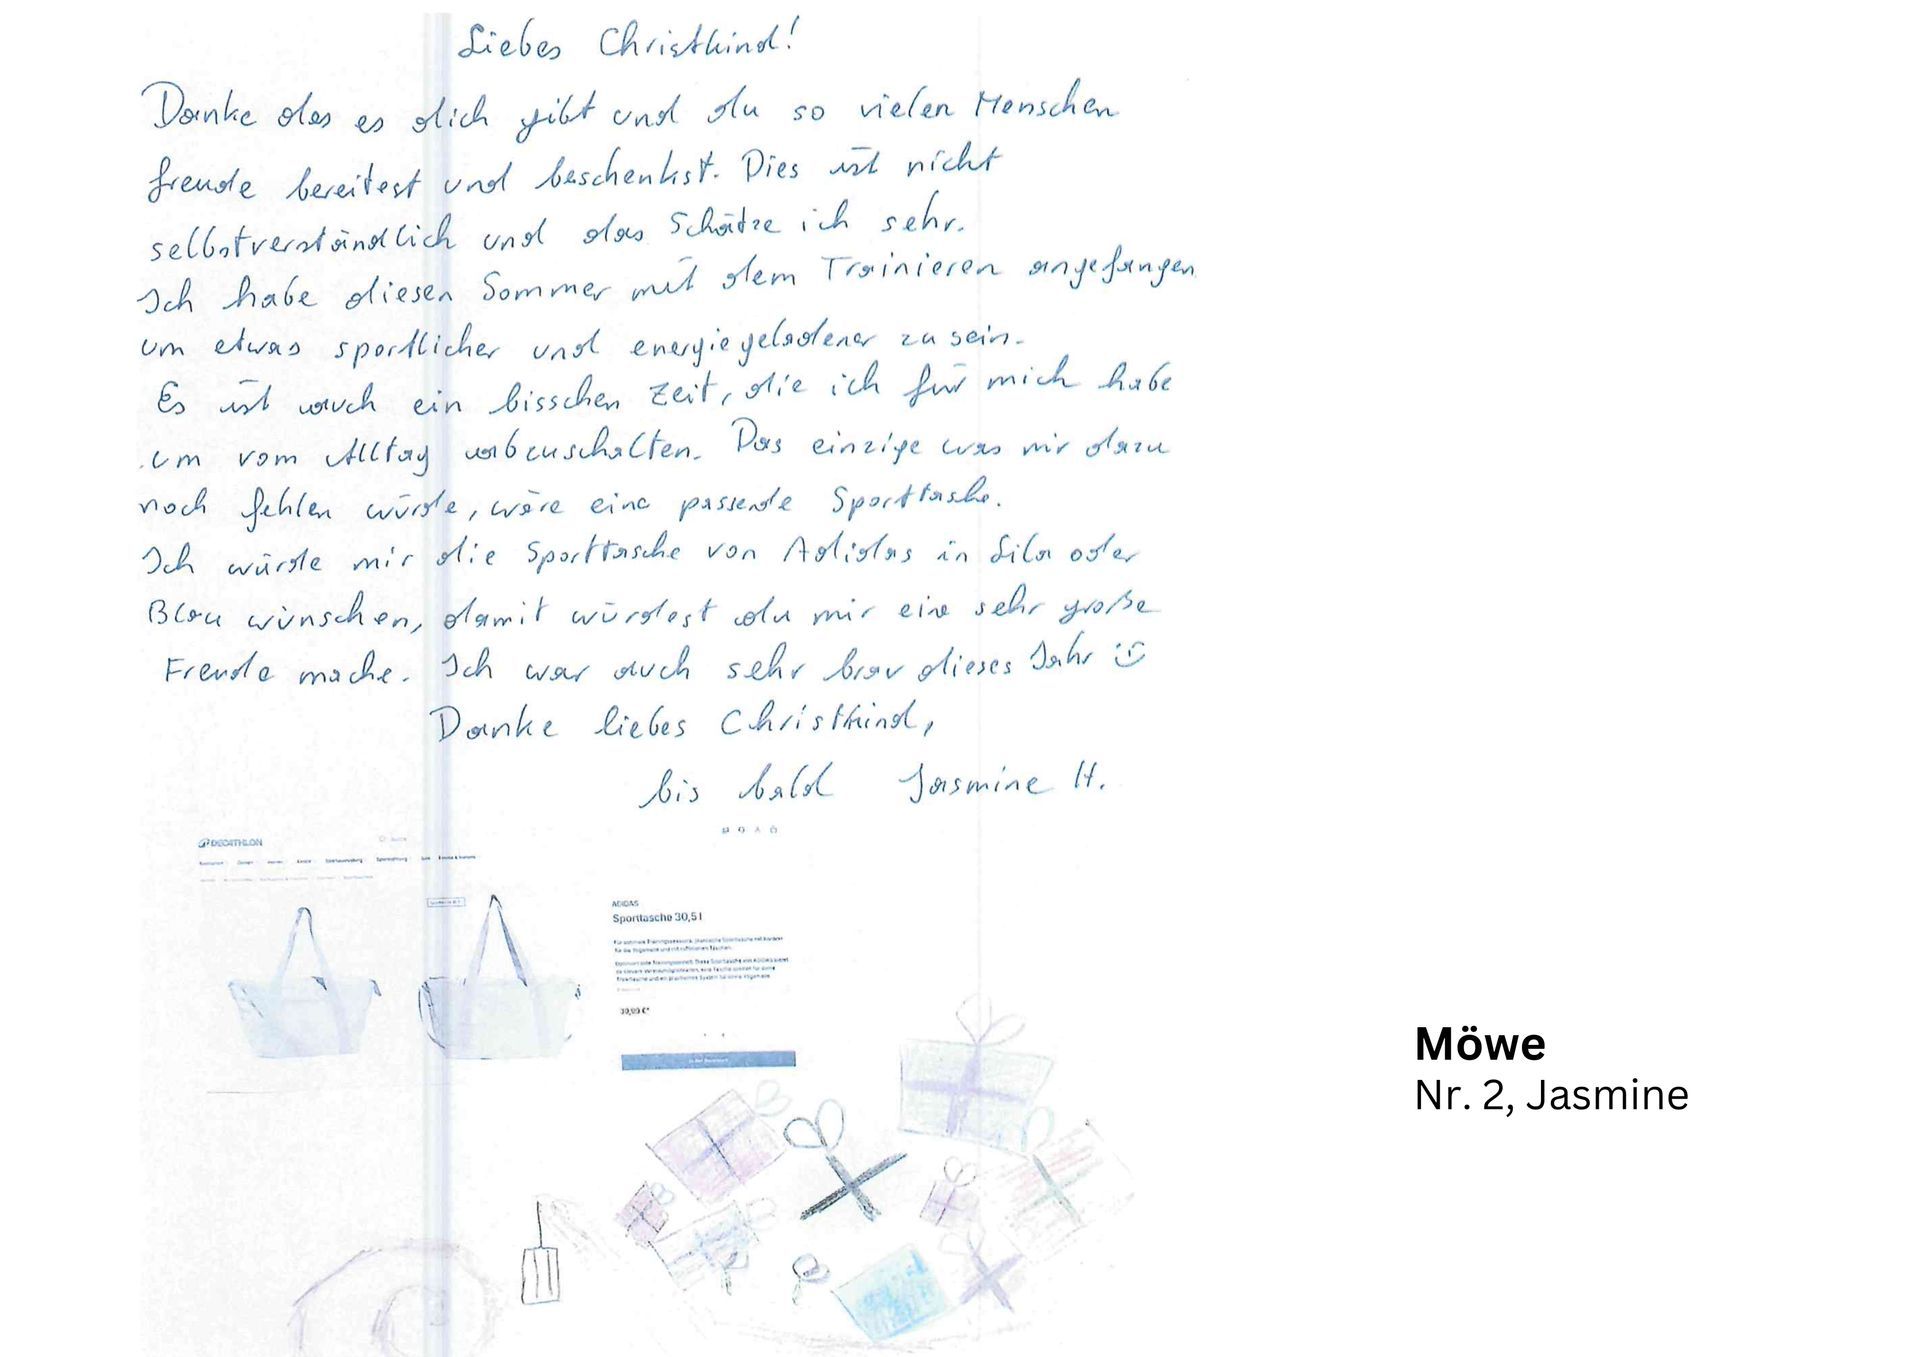 Liebes Christkind!
Danke das es dich gibt und du so vielen Menschen
freude bereitest und beschenkst. Dies ist nicht
selbstverständlich und das Schätze ich sehr.
Ich habe diesen Sommer mit dem Trainieren angefangen
um etwas sportlicher und energiegeladener zu sein.
Es ist auch ein bisschen Zeit, die ich für mich habe
um vom Alltag abzuschalten. Das einzige was mir dazu
noch fehlen würde, wäre eine passende Sporttasche.
Ich würde mir die Sporttasche von Adidas in Lila oder
Blau wünschen, damit würdest du mir eine sehr große
Freude mache. Ich war auch sehr brav dieses Jahr
Danke liebes Christkind,
bis bald Jasmine H.
DECATHLON
ADIDAS
Sporttasche 30,5 l
39,99 €*
Möwe
Nr. 2, Jasmine